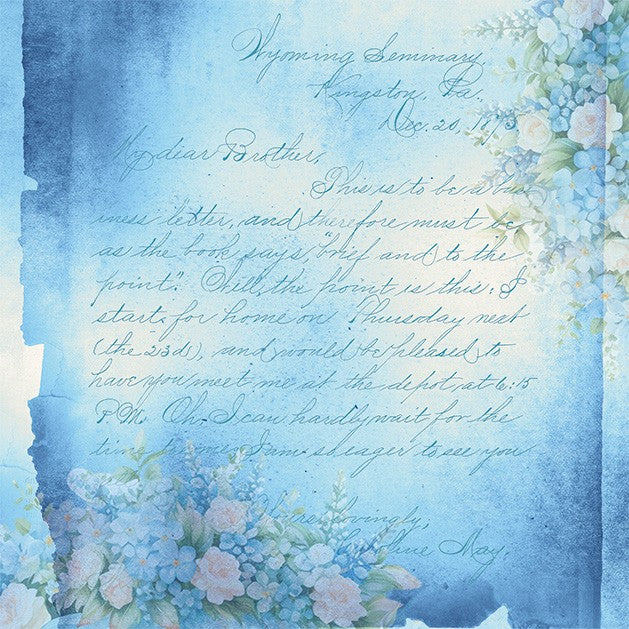 Wyoming Seminary,
Kingston, Pa.,
Dec. 20,
My dear Brother,
This is to be a bus
iness letter, and therefore must be
as the book says, "brief and to the
point". Well, the point is this: I
start for home on Thursday next
(the 23d), and would be pleased to
have you meet me at the depot, at 6:15
P.M. Oh I can hardly wait for the
time I am so eager to see you
lovingly,
May.